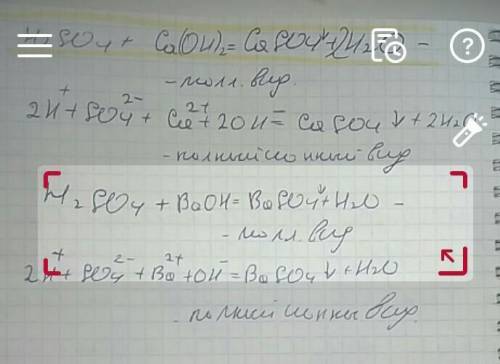 H₂SO₄ + Ca(OH)₂ = CaSO₄↓ + 2H₂O -
- мол. вид.
2H⁺ + SO₄²⁻ + Ca²⁺ + 2OH⁻ = CaSO₄↓ + 2H₂O
- полный ионный вид
H₂SO₄ + BaOH = BaSO₄↓ + H₂O -
- мол. вид
2H⁺ + SO₄²⁻ + Ba²⁺ + OH⁻ = BaSO₄↓ + H₂O
- полный ионный вид.